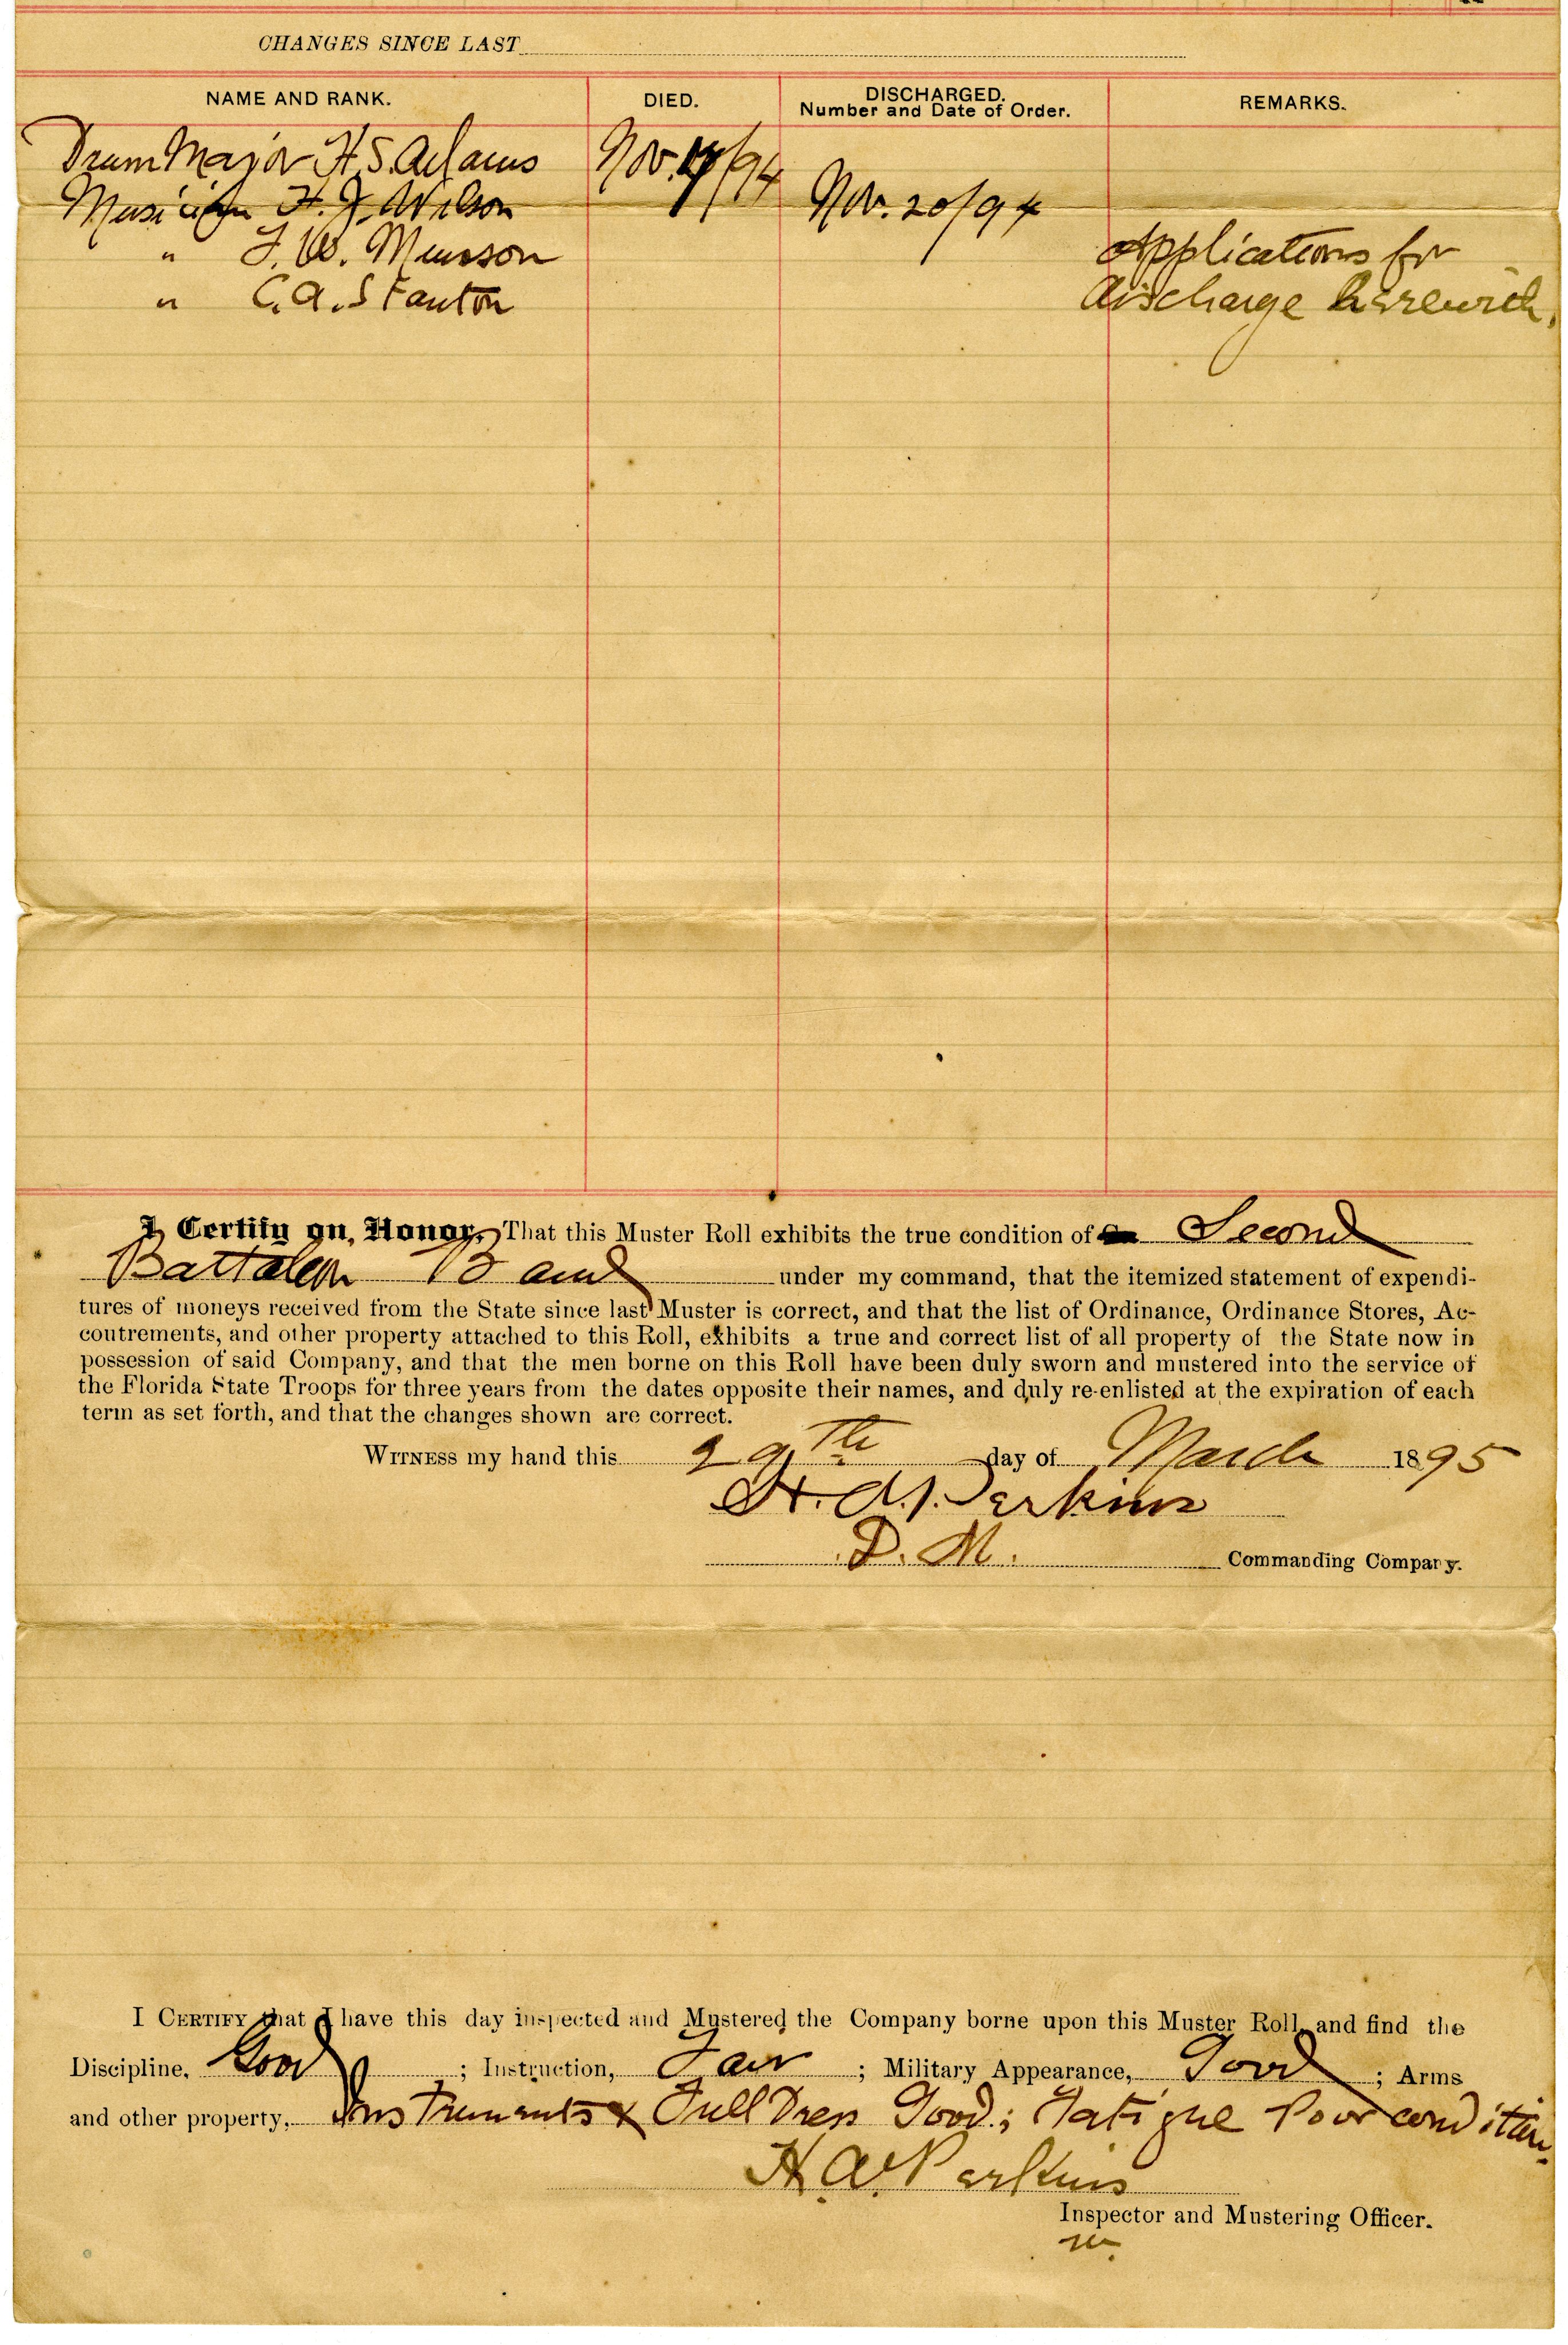 CHANGES SINCE LAST
NAME AND RANK. DIED. DISCHARGED. Number and Date of Order. REMARKS.
Drum Major H. S. Adams Nov. /94
Musician H. J. Wilson Nov. 20/94
" F. W. Munson Applications for
" C. A. Stanton discharge herewith.
I Certify on Honor, That this Muster Roll exhibits the true condition of Second
Battalion Band under my command, that the itemized statement of expendi-
tures of moneys received from the State since last Muster is correct, and that the list of Ordinance, Ordinance Stores, Ac-
coutrements, and other property attached to this Roll, exhibits a true and correct list of all property of the State now in
possession of said Company, and that the men borne on this Roll have been duly sworn and mustered into the service of
the Florida State Troops for three years from the dates opposite their names, and duly re-enlisted at the expiration of each
term as set forth, and that the changes shown are correct.
WITNESS my hand this 29th day of March 1895
H. A. Perkins
D. M. Commanding Company.
I CERTIFY that I have this day inspected and Mustered the Company borne upon this Muster Roll, and find the
Discipline, Good ; Instruction, Fair ; Military Appearance, Good ; Arms
and other property, Instruments & Full Dress Good; Fatigue Poor condition.
H. A. Perkins
Inspector and Mustering Officer.